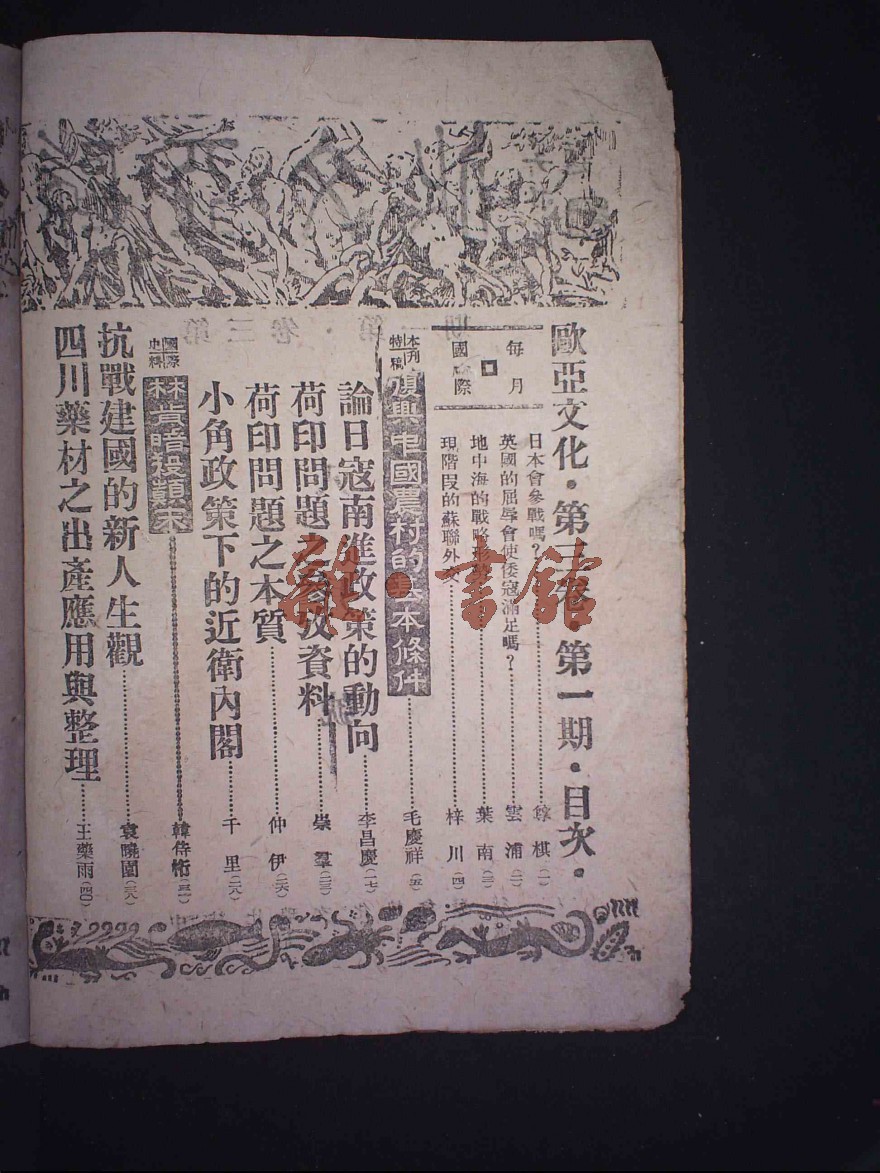 歐亞文化・第三卷 第一期・目次・
每月
國際
日本會參戰嗎？…棋(一)
英國的屈辱會使倭寇滿足嗎？…雲浦(二)
地中海的戰略形勢…葉南(三)
現階段的蘇聯外交…梓川(四)
本刊特稿
復興中國農村的基本條件…毛慶祥(五)
論日寇南進政策的動向…李昌慶(一七)
荷印問題之參攷資料…崇羣(二三)
荷印問題之本質…仲伊(二六)
小角政策下的近衛內閣…千里(二八)
國際史料
林肯暗殺顛末…韓侍桁(三一)
抗戰建國的新人生觀…袁曉園(三八)
四川藥材之出產應用與整理…王藥雨(四〇)
龍・書館